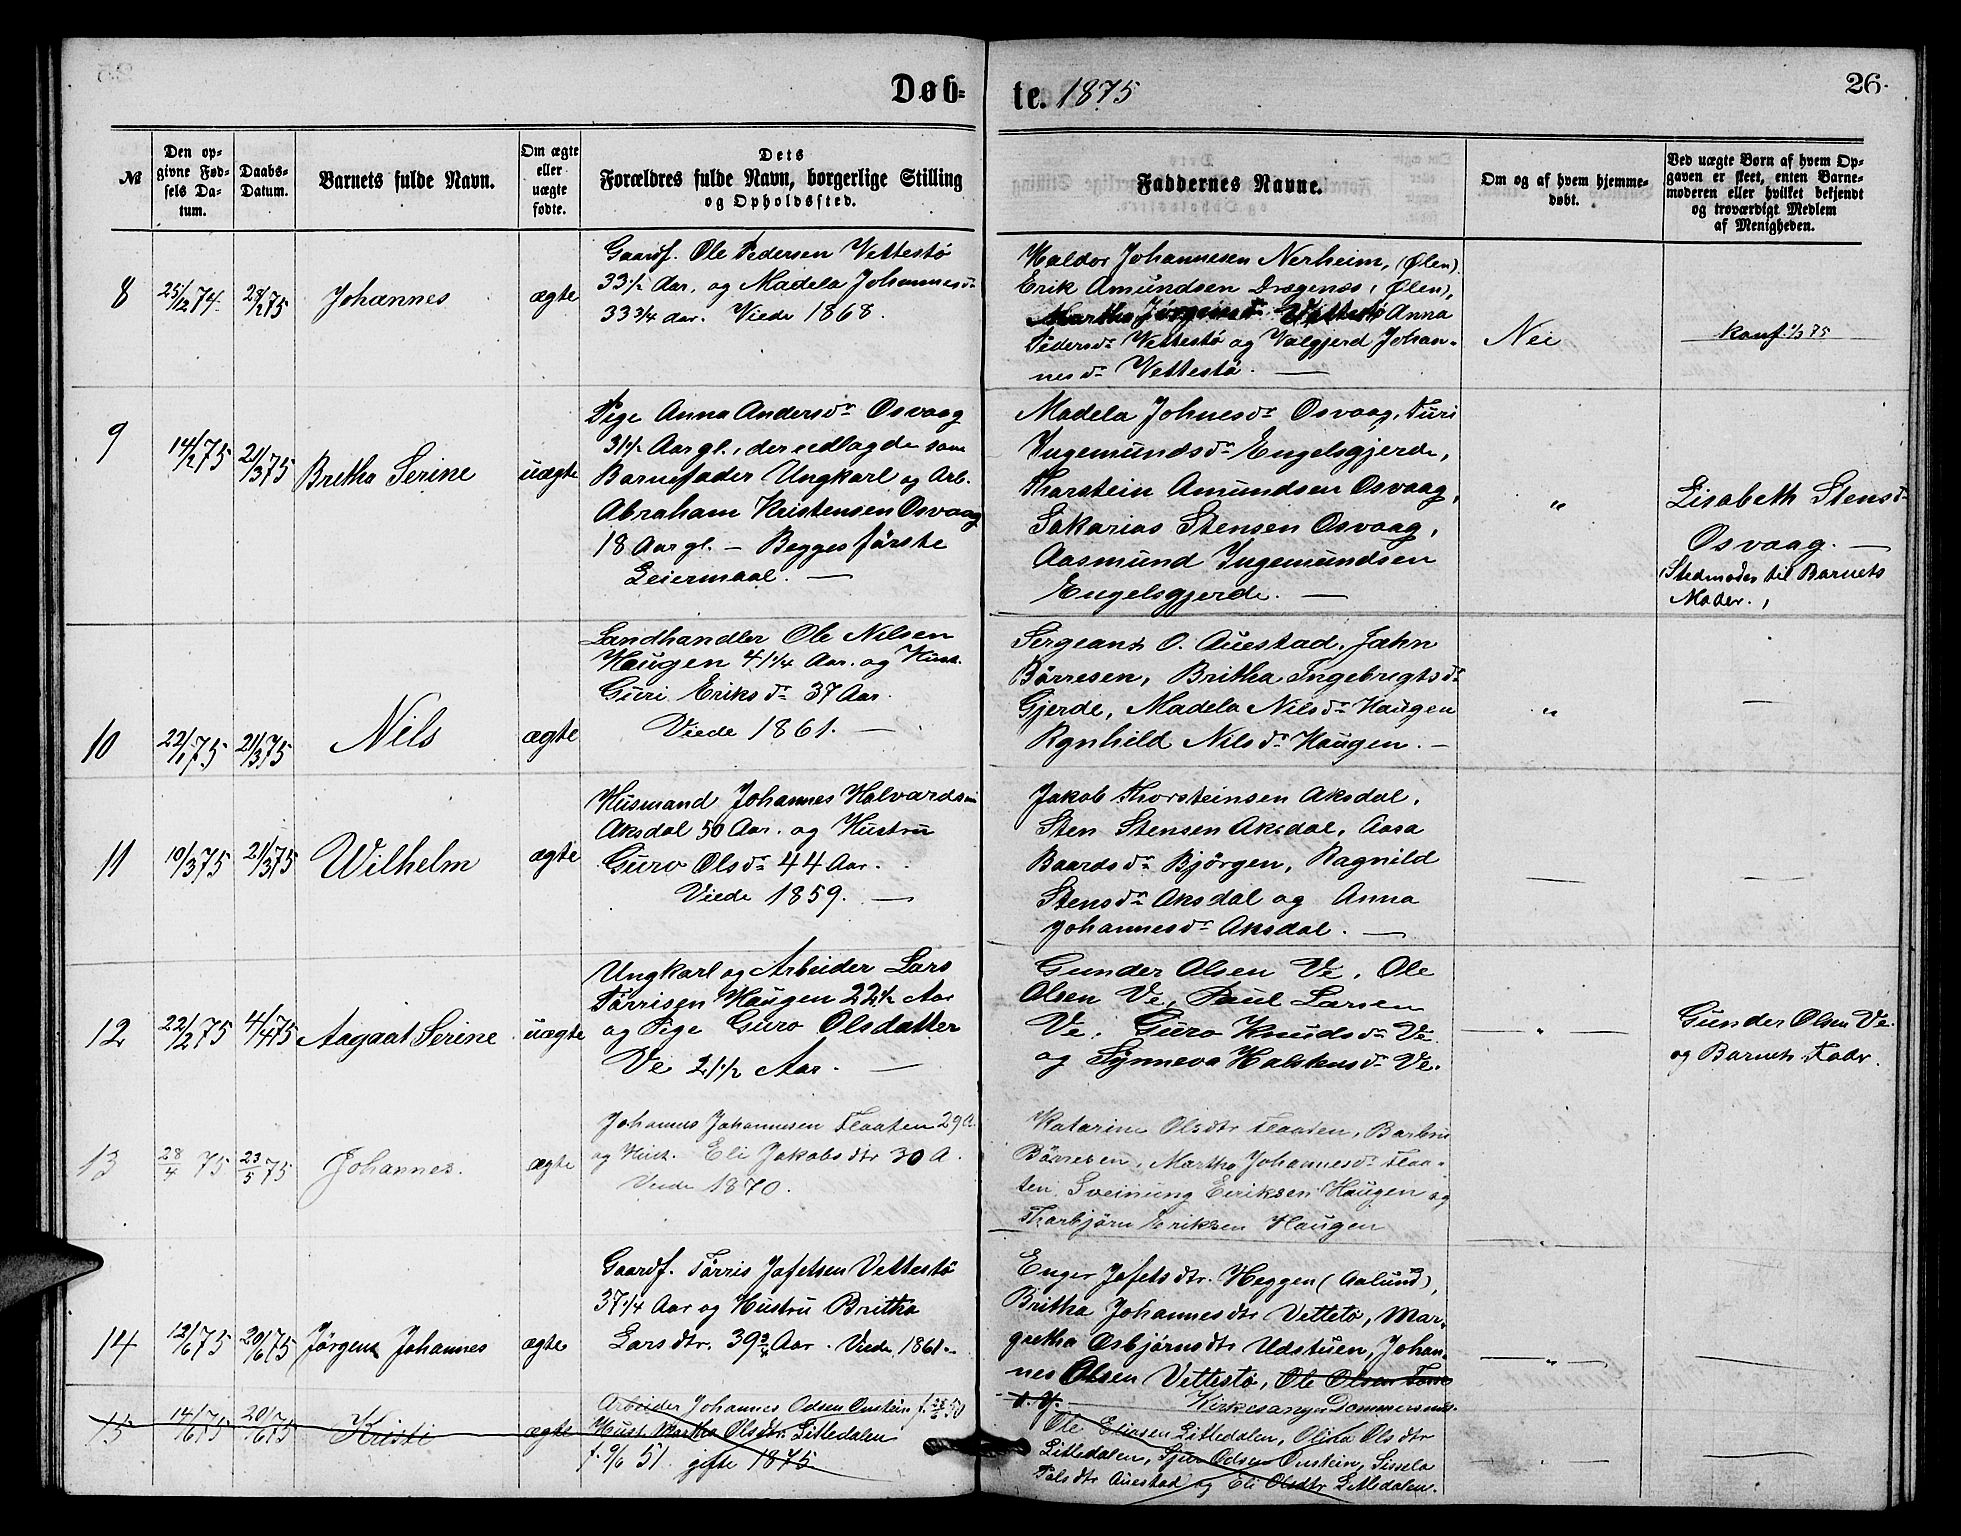 Døb-
te. 1875
26.
№
Den op-
givne Fød-
sels Da-
tum.
Daabs-
Datum.
Barnets fulde Navn.
Om ægte
eller
uægte
fødte.
Dets
Forældres fulde Navn, borgerlige Stilling
og Opholdssted.
Faddernes Navne.
Om og af hvem hjemme-
døbt.
Ved uægte Børn af hvem Op-
gaven er skeet, enten Barne-
moderen eller hvilket bekjendt
og troværdigt Medlem
af Menigheden.
8
25/12 74.
28/2 75
Johannes
ægte
Gaardf. Ole Pedersen Vettestø
33 1/2 Aar, og Madela Johannesdr
33 3/4 aar. Viede 1868.
Haldor Johannesen Nerheim, (Ølen)
Erik Amundsen Dragenæs, (Ølen),
Martha Jørgensdr Vettestø Anna
Pedersdr Vettestø og Valgjerd Johan-
nesdr Vettestø. —
Nei
Konf. 1/3 75
9
14/2 75
21/3 75
Bretha Serine
uægte
Pige Anna Andersdr Osvaag
31 1/2 Aar gl., der udlagde som
Barnefader Ungkarl og Arb.
Abraham Kristensen Osvaag
18 Aar gl. — Begges første
Leiermaal. —
Madela Johnesdr Osvaag, Turi
Ingemundsdr Engelsgjerde,
Thorstein Amundsen Osvaag,
Sakarias Stensen Osvaag,
Aasmund Ingemundsen
Engelsgjerde. —
"
Lisabeth Stensdr
Osvaag. —
Stedmoder til Barnets
Moder.,
10
22/1 75
21/3 75
Nils
ægte
Landhandler Ole Nilsen
Haugen 41 1/4 Aar. og Hust.
Guri Eriksdr 37 Aar.
Viede 1861. —
Sergeant O. Auestad, John
Børresen, Britha Ingebregtsdr
Gjerde, Madela Nilsdr Haugen
Rgnhild Nilsdr Haugen. —
"
—
11
10/3 75
21/3 75
Wilhelm
ægte
Husmand Johannes Halvardsen
Aksdal 50 Aar. og Hustru
Guro Olsdr 44 Aar.
Viede 1859. —
Jakob Thorsteinsen Aksdal,
Sten Stensen Aksdal, Aasa
Baardsdr Bjørgen, Ragnild
Stensdr Aksdal og Anna
Johannesdr Aksdal. —
—
—
12
22/2 75
4/4 75
Aagaat Serine
uægte
Ungkarl og Arbeider Lars
Tørrisen Haugen 22 1/2 Aar
og Pige Guro Olsdatter
Ve 21 1/2 Aar. —
Gunder Olsen Ve, Ole
Olsen Ve, Paul Larsen
Ve, Guro Knudsdr Ve
og Synneva Halstensdr Ve.
— " —
Gunder Olsen Ve
og Barnets Fader.
13
28/4 75
23/5 75
Johannes.
ægte
Johannes Johannesen Flaaten 29 A.
og Hust. Eli Jakobsdtr 30 A.
Viede 1870.
Katarine Olsdtr Flaaten, Barbru
Børresen, Martha Johannesdr Flaa-
ten, Sveinung Eriksen Haugen og
Thorbjørn Eriksen Haugen
"
14
12/6 75
20/6 75
Jørgen Johannes
ægte
Gaardf. Tørris Jafetsen Vettestø
37 1/4 Aar og Hustru Britha
Larsdtr. 39 3/4 Aar. Viede 1861.
Enger Jafetsdtr. Heggen (Aalund),
Britha Johannesdtr Vettetø, Mar-
gretha Osbjørnsdtr Udstuen, Johan-
nes Olsen Vettestø, Ole Olsen
Kirkesanger Dommersnes.
— " —
—
15
14/6 75
20/6 75
Kristi
ægte
Arbeider Johannes Odsen Onstein f. 50
Hust. Martha Olsdtr. Litledalen
f. 9/6 51. gifte 1875
Ole Eliasen Litledalen, Olina Olsdtr
Litledalen, Sjur Odsen Onstein, Sissela
Palsdtr Auestad og Eli Olsdtr Litledalen.